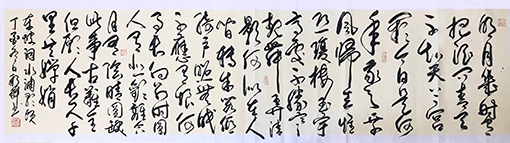 明月幾時有
把酒问青天
不知天上宫
阙今夕是何
年我欲乘
风归去唯恐
琼楼玉宇
高处不胜寒
起舞弄清
影何似在人
间转朱阁低
绮户照无眠
不应有恨何
事长向别时圆
人有悲欢离合
月有阴晴圆缺
此事古难全
但愿人长久千
里共婵娟
苏轼词水调歌头
丁酉